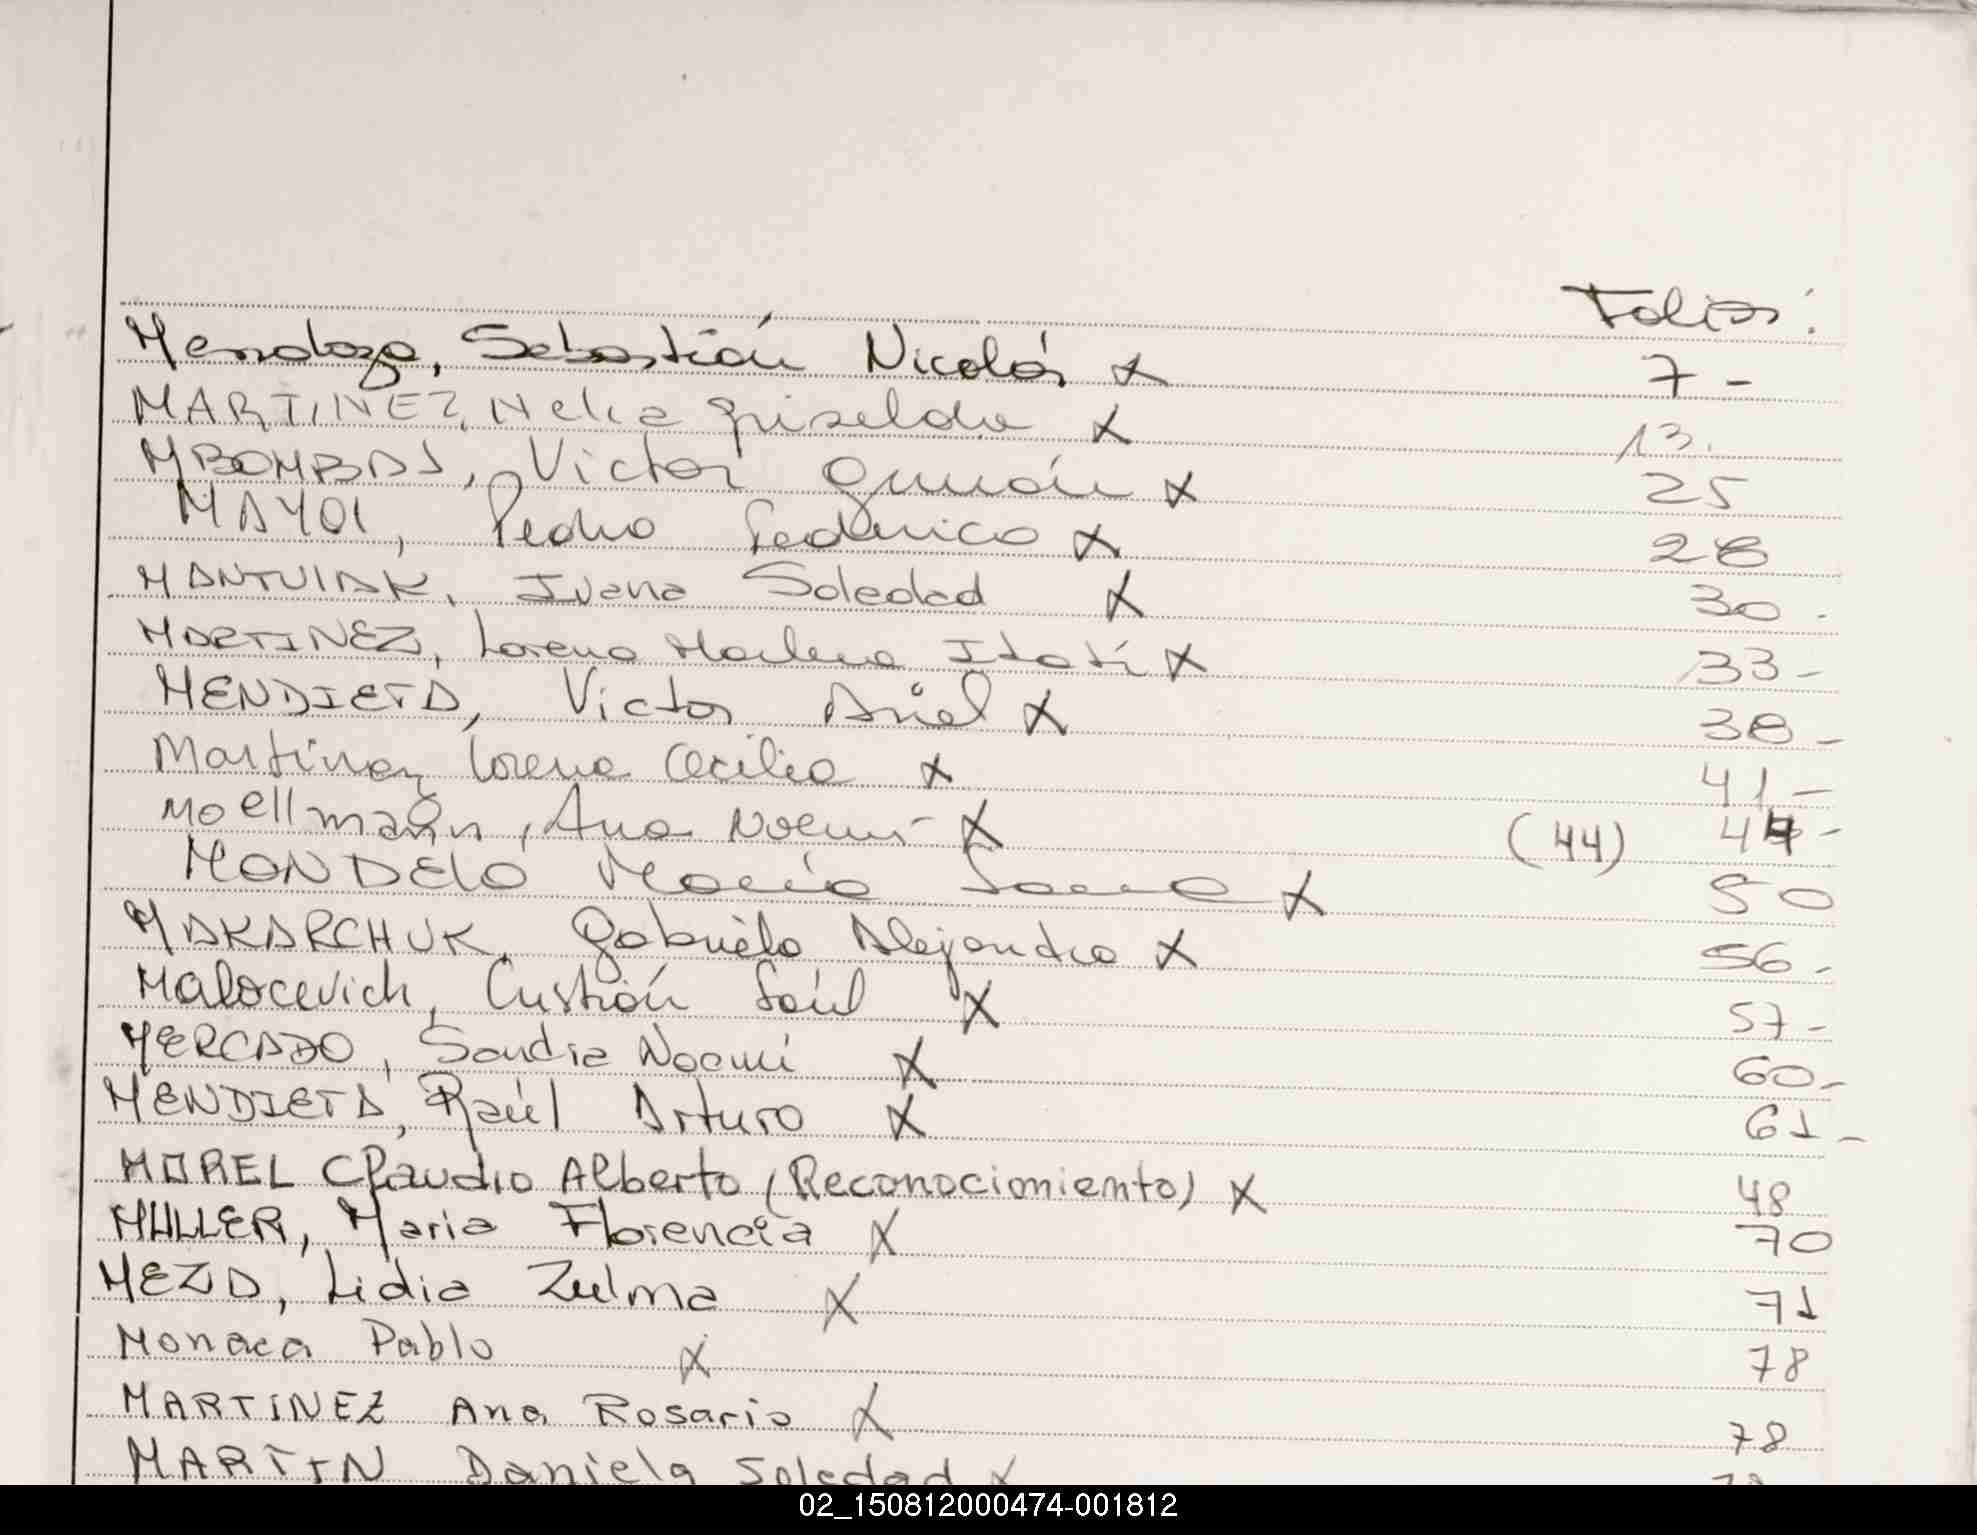 Folios:
Mendoza, Sebastián Nicolás x 7 -
MARTINEZ, Nelia Griselda x 13.
MBOMBAJ, Victor Germán x 25
MAYOL, Pedro Federico x 28
MANTUIAK, Ivana Soledad x 30 -
MARTINEZ, Lorena Marlena Itatí x 33 -
MENDIETA, Victor Ariel x 38 -
Martinez Lorena Cecilia x 41 -
Moellmann, Ana Noemi x (44) 44 -
MONDELO María x 50
MAKARCHUK, Gabriela Alejandra x 56 -
Malocevich, Cristián Saúl x 57 -
MERCADO, Sandra Noemi x 60 -
MENDIETA, Raúl Arturo x 61 -
MOREL Claudio Alberto (Reconocimiento) x 48
MULLER, Maria Florencia x 70
MEZA, Lidia Zulma x 71
Monaca Pablo x 78
MARTINEZ Ana Rosario x 78
MARTIN Daniela Soledad x
02_150812000474-001812